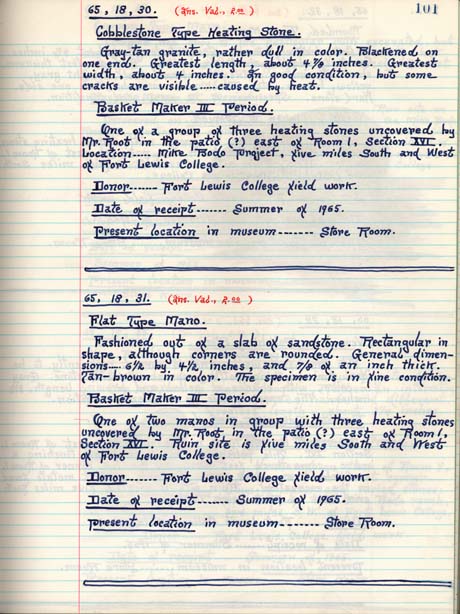 101
65, 18, 30. (Ins. Val., 2.00)
Cobblestone Type Heating Stone.
Gray-tan granite, rather dull in color. Blackened on
one end. Greatest length, about 4 7/8 inches. Greatest
width, about 4 inches. In good condition, but some
cracks are visible.....caused by heat.
Basket Maker III Period.
One of a group of three heating stones uncovered by
Mr. Root in the patio (?) east of Room 1, Section XVI.
Location..... Mike Bodo Project, five miles South and West
of Fort Lewis College.
Donor....... Fort Lewis College field work.
Date of receipt....... Summer of 1965.
Present location in museum....... Store Room.
65, 18, 31. (Ins. Val., 2.00)
Flat Type Mano.
Fashioned out of a slab of sandstone. Rectangular in
shape, although corners are rounded. General dimen-
sions.... 6 1/2 by 4 1/2 inches, and 7/8 of an inch thick.
Tan-brown in color. The specimen is in fine condition.
Basket Maker III Period.
One of two manos in group with three heating stones
uncovered by Mr. Root, in the patio (?) east of Room 1,
Section XVI. Ruin site is five miles South and West
of Fort Lewis College.
Donor....... Fort Lewis College field work.
Date of receipt....... Summer of 1965.
Present location in museum....... Store Room.